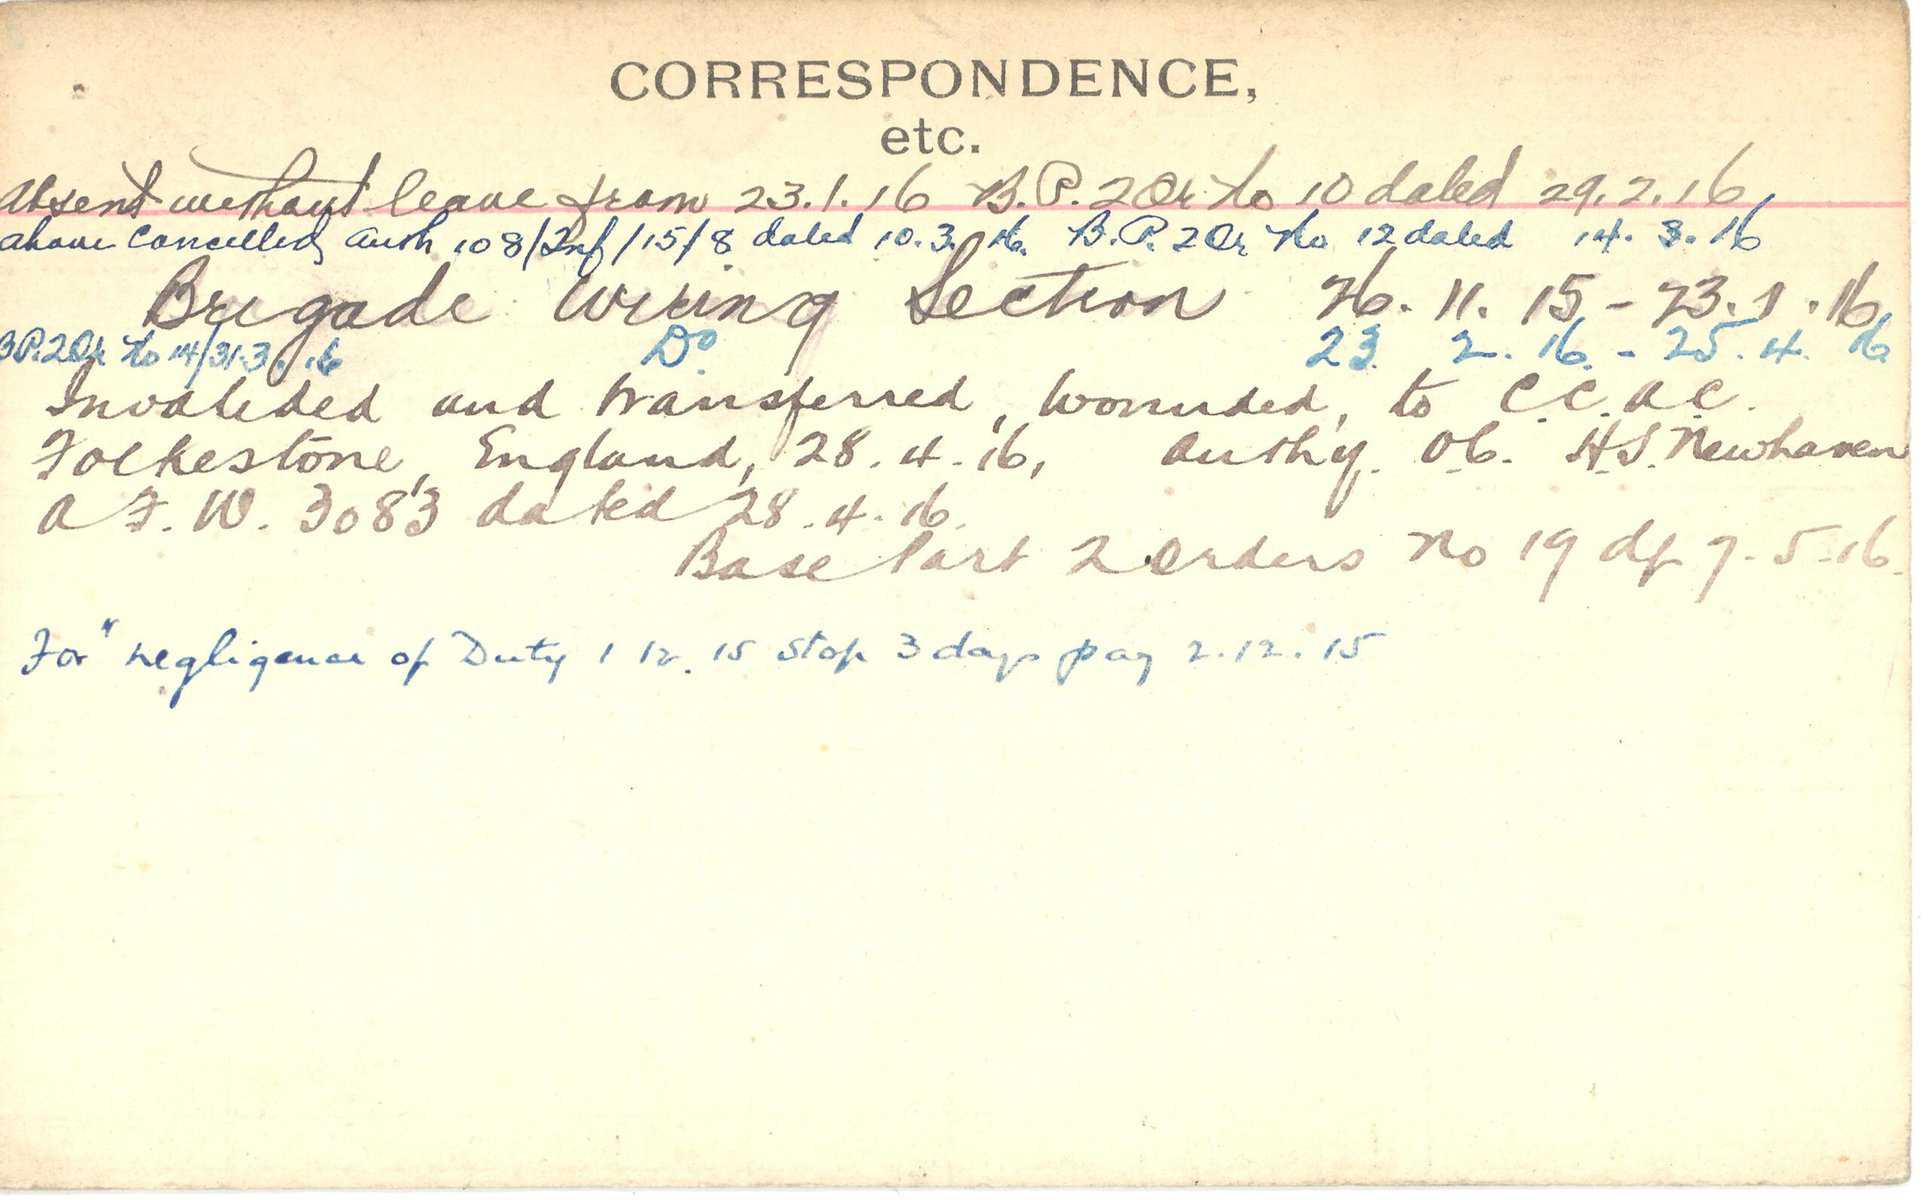 CORRESPONDENCE,
etc.
Absent without leave from 23.1.16 B.P.2 Or No 10 dated 29.2.16
above cancelled Auth 108/Inf/15/8 dated 10.3.16. B.P.2 Or No 12 dated 14.3.16
Brigade Wiring Section 26.11.15 - 23.1.16
BP.2Or No 14/31.3.16 Do. 23 2.16 - 25.4.16
Invalided and transferred, wounded, to C.C.A.C.
Folkestone, England, 28.4.16, Authy. O.C. H.S. Newhaven
A F. W. 3083 dated 28.4.16.
Base Part 2 Orders No 19 df 7.5.16.
For "negligence of Duty 1 12. 15 Stop 3 days pay 2.12.15